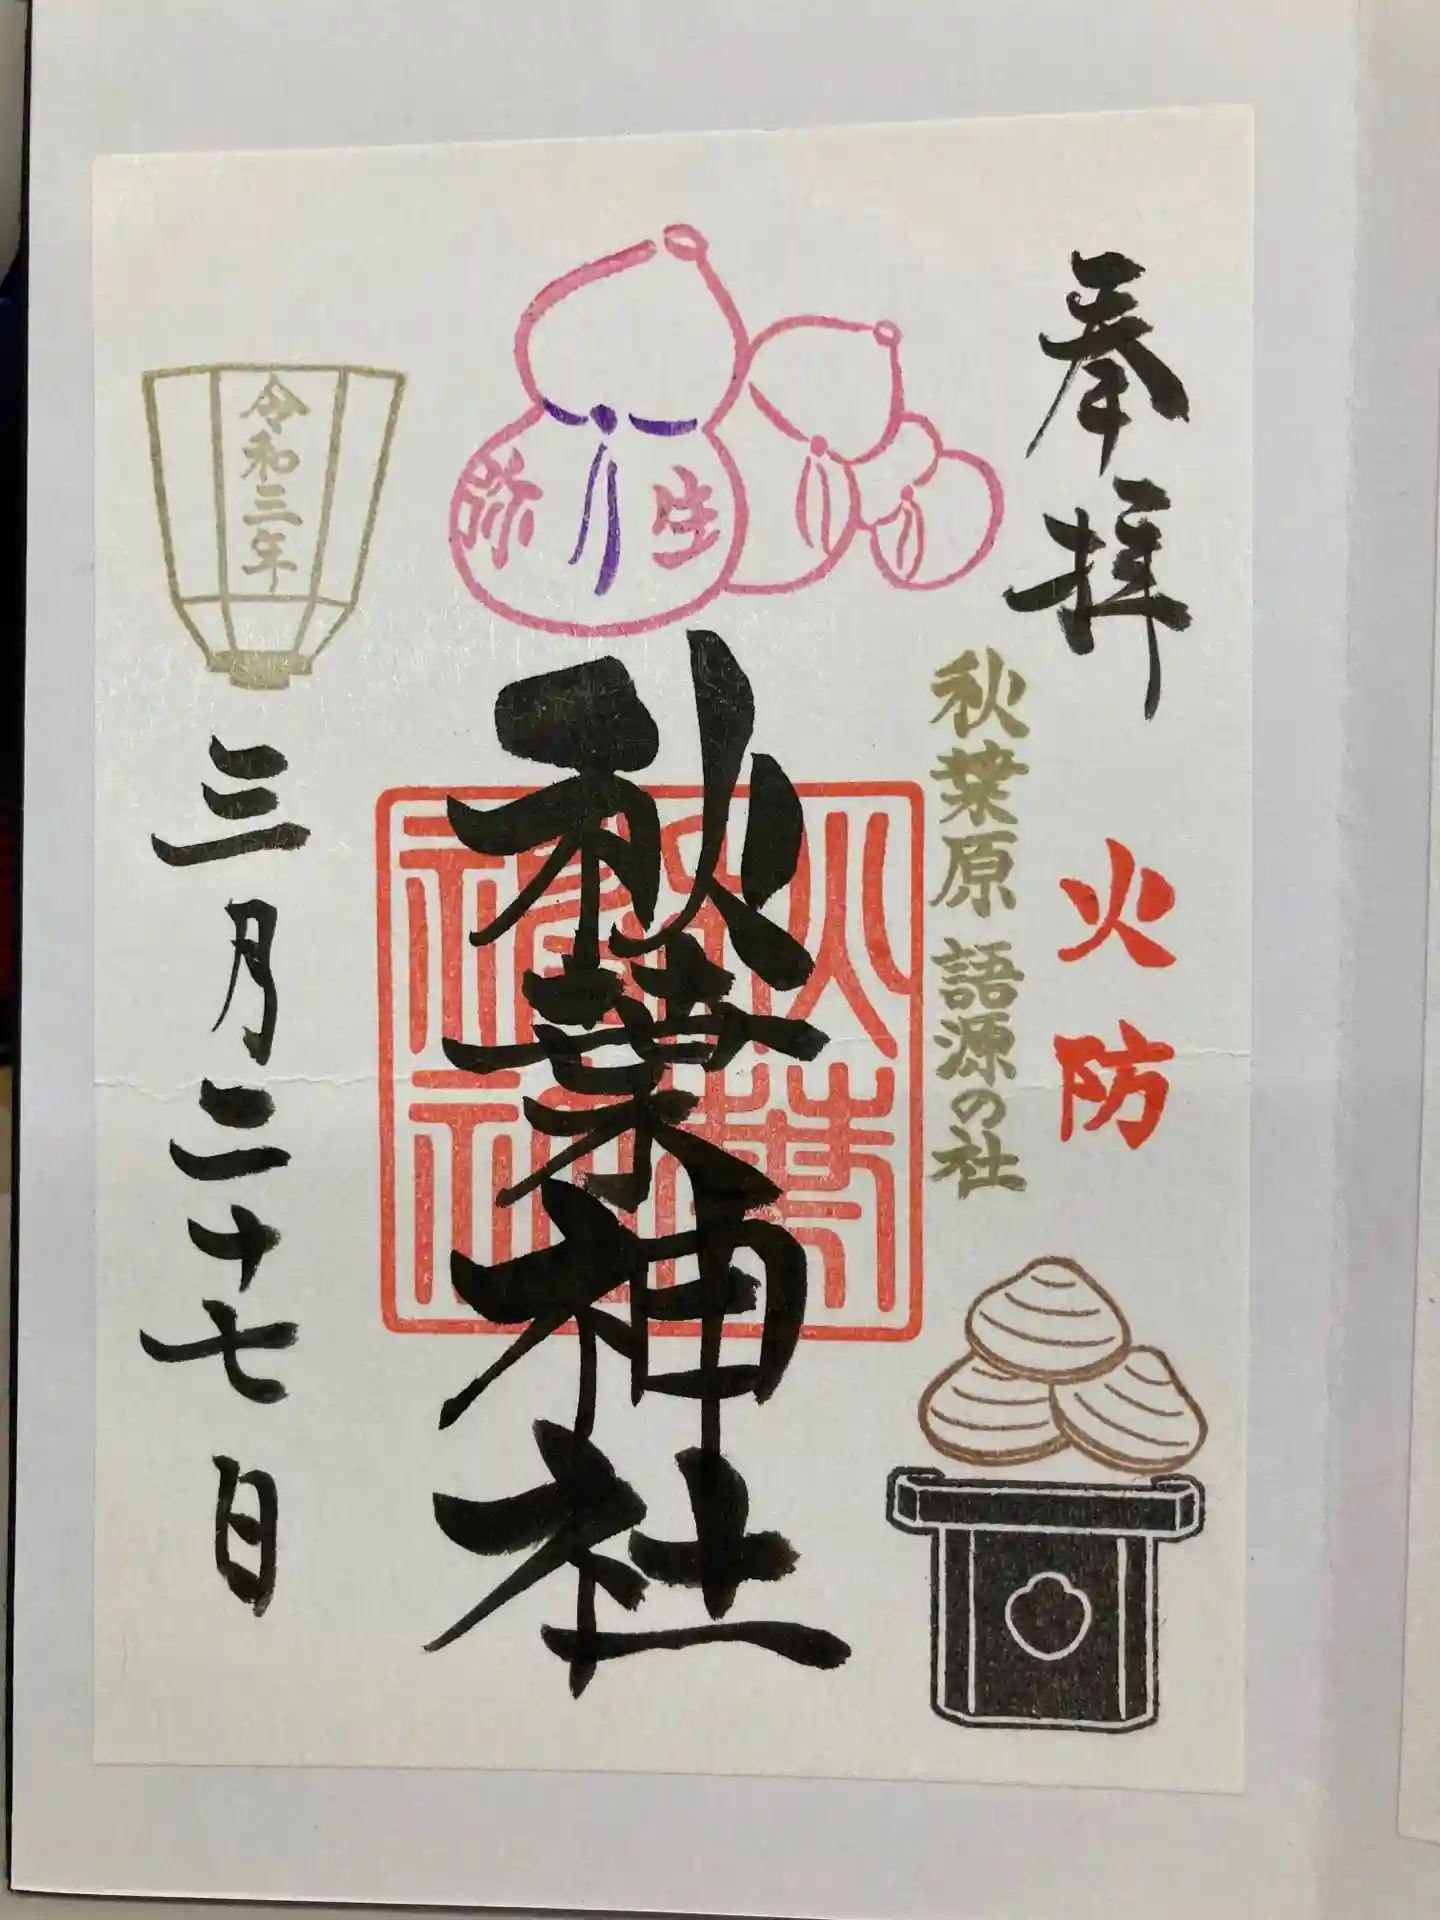 奉拝
火防
秋葉原 語源の社
弥生
秋葉神社
令和三年
三月二十七日